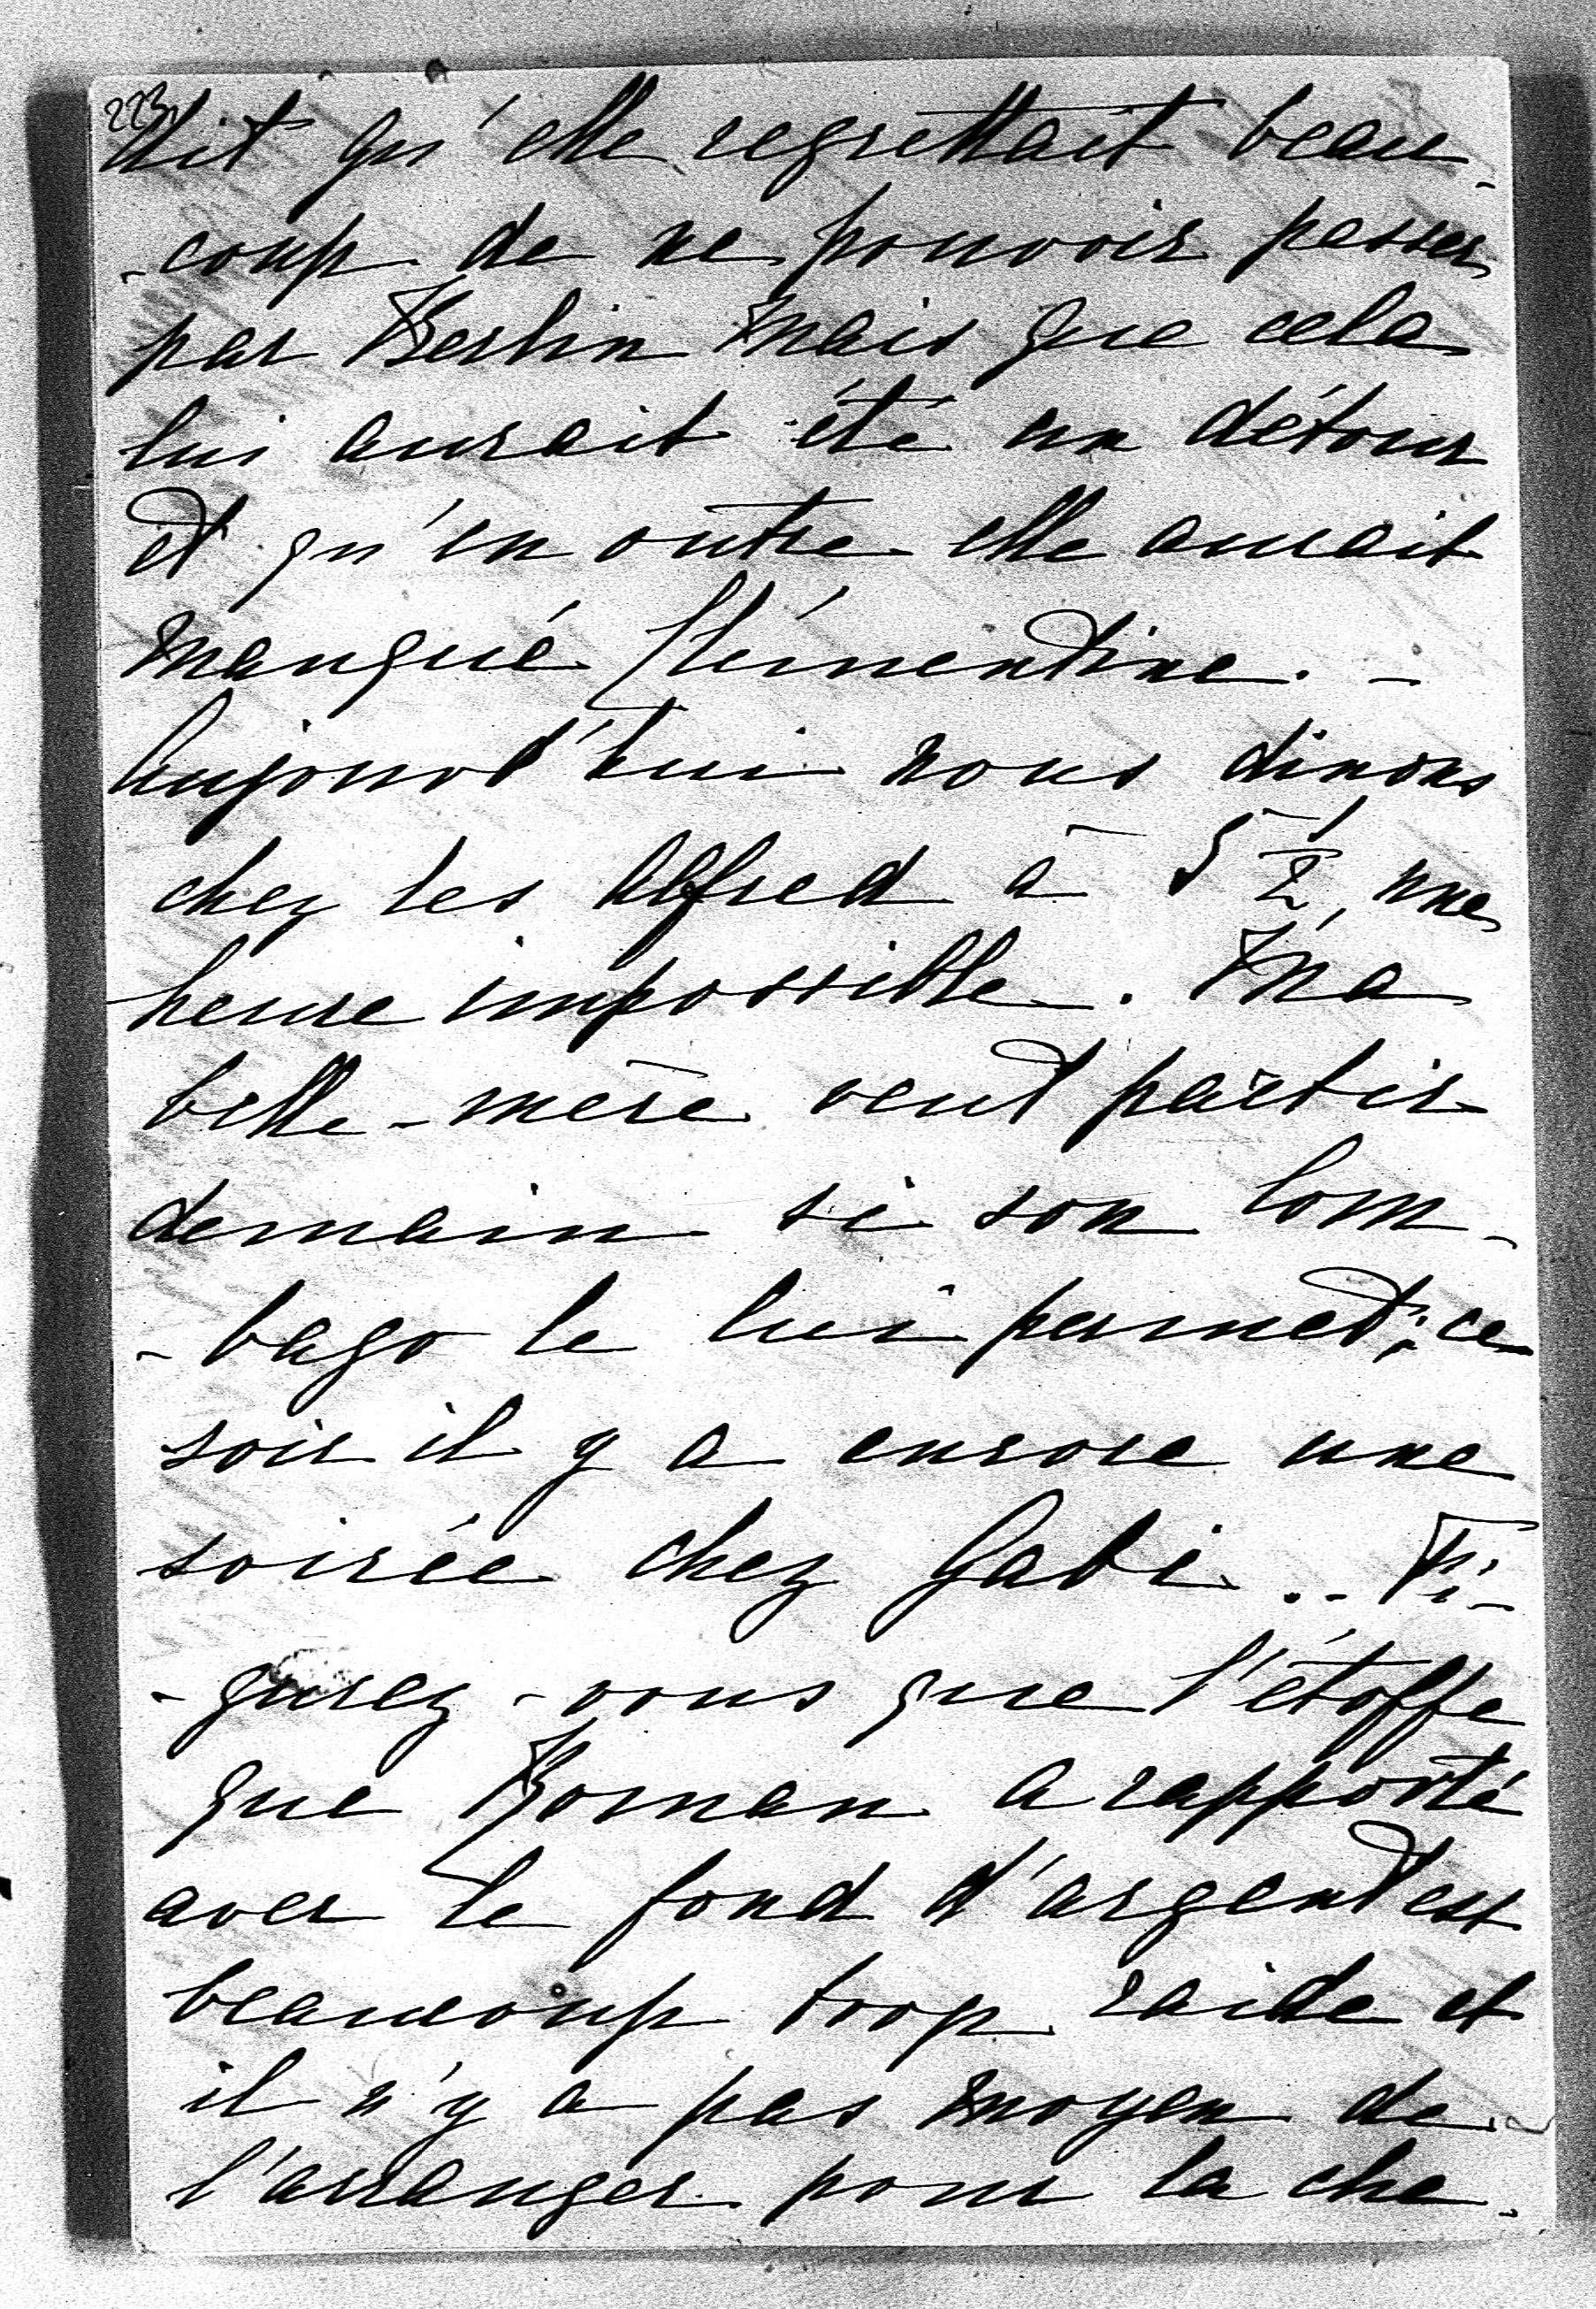 223
dit qu'elle regrettait beau-
-coup de ne pouvoir passer
par Berlin mais que cela
lui aurait été un détour
et qu'en outre elle aurait
manqué Clémentine. -
Aujourd'hui nous dinons
chez les Alfred à 5 1/2, une
heure impossible. Ma
belle-mère veut partir
demain si son lom-
-bago le lui permet; ce
soir il y a encore une
soirée chez Gabi .. Fi-
-gurez-vous que l'étoffe
que Roman a rapporté
avec le fond d'argent est
beaucoup trop raide et
il n'y a pas moyen de
l'arranger pour la che-